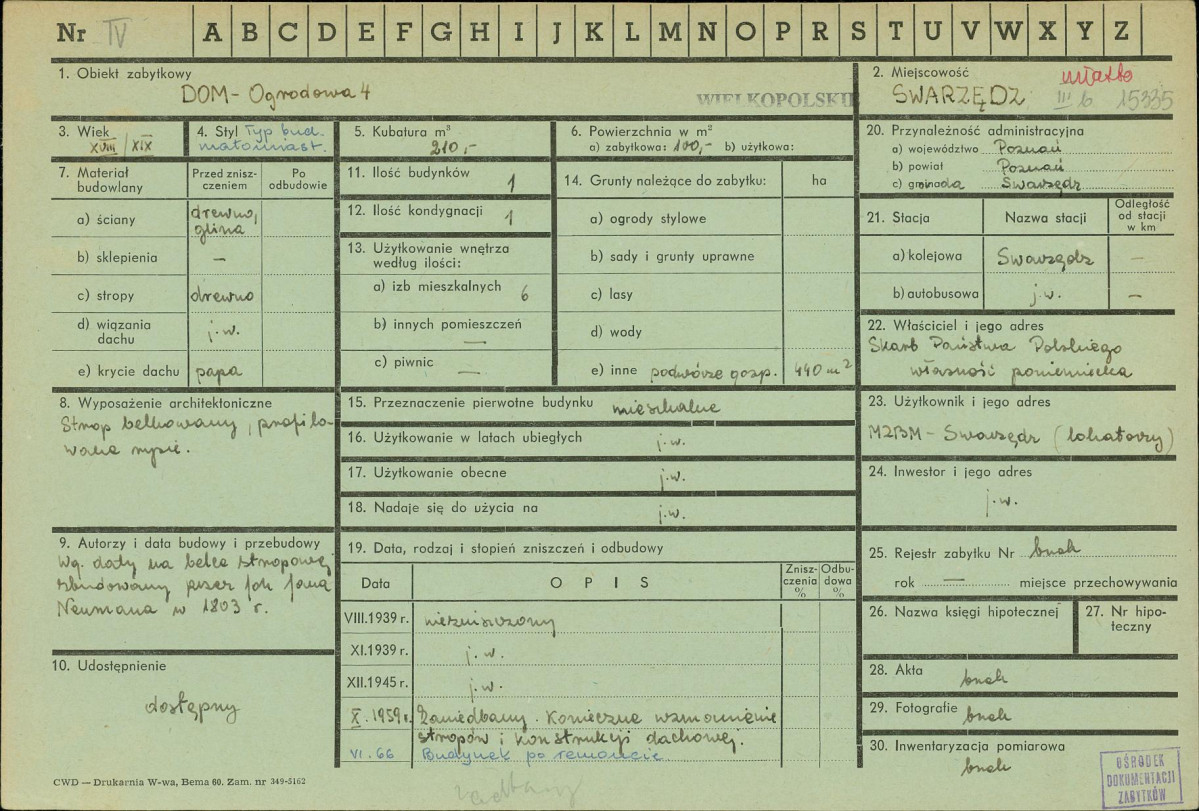 Nr IV A B C D E F G H I J K L M N O P R S T U V W X Y Z
1. Obiekt zabytkowy
DOM - Ogrodowa 4
WIELKOPOLSKIE
2. Miejscowość miasto
SWARZĘDZ III b 15335
3. Wiek
XVIII / XIX
4. Styl Typ bud.
małomiast.
5. Kubatura m³
210,-
6. Powierzchnia w m²
a) zabytkowa: 100,- b) użytkowa:
7. Materiał budowlany
Przed zniszczeniem
Po odbudowie
a) ściany drewno,
glina
b) sklepienia —
c) stropy drewno
d) wiązania dachu j.w.
e) krycie dachu papa
8. Wyposażenie architektoniczne
Strop belkowany, profilo-
wane
9. Autorzy i data budowy i przebudowy
Wg. daty na belce stropowej
zbudowany przez Joh Jana
Neumana w 1803 r.
10. Udostępnienie
dostępny
11. Ilość budynków 1
12. Ilość kondygnacji 1
13. Użytkowanie wnętrza
według ilości:
a) izb mieszkalnych 6
b) innych pomieszczeń —
c) piwnic —
14. Grunty należące do zabytku: ha
a) ogrody stylowe
b) sady i grunty uprawne
c) lasy
d) wody
e) inne podwórze gosp. 440 m²
15. Przeznaczenie pierwotne budynku mieszkalne
16. Użytkowanie w latach ubiegłych j.w.
17. Użytkowanie obecne j.w.
18. Nadaje się do użycia na j.w.
19. Data, rodzaj i stopień zniszczeń i odbudowy
Data OPIS Zniszczenia % Odbudowa %
VIII.1939 r. niezniszczony
XI.1939 r. j.w.
XII.1945 r. j.w.
X.1959 r. Zaniedbany. Konieczne wzmocnienie
stropów i konstrukcji dachowej.
VI.66 Budynek po remoncie
20. Przynależność administracyjna
a) województwo Poznań
b) powiat Poznań
c) gmina Swarzędz
21. Stacja Nazwa stacji Odległość od stacji w km
a) kolejowa Swarzędz —
b) autobusowa j.w. —
22. Właściciel i jego adres
Skarb Państwa Polskiego
własność poniemiecka
23. Użytkownik i jego adres
MZBM - Swarzędz (lokatorzy)
24. Inwestor i jego adres
j.w.
25. Rejestr zabytku Nr brak
rok — miejsce przechowywania
26. Nazwa księgi hipotecznej
27. Nr hipoteczny
28. Akta brak
29. Fotografie brak
30. Inwentaryzacja pomiarowa
brak
CWD — Drukarnia W-wa, Bema 60. Zam. nr 349-5162
zadbany
OŚRODEK
DOKUMENTACJI
ZABYTKÓW